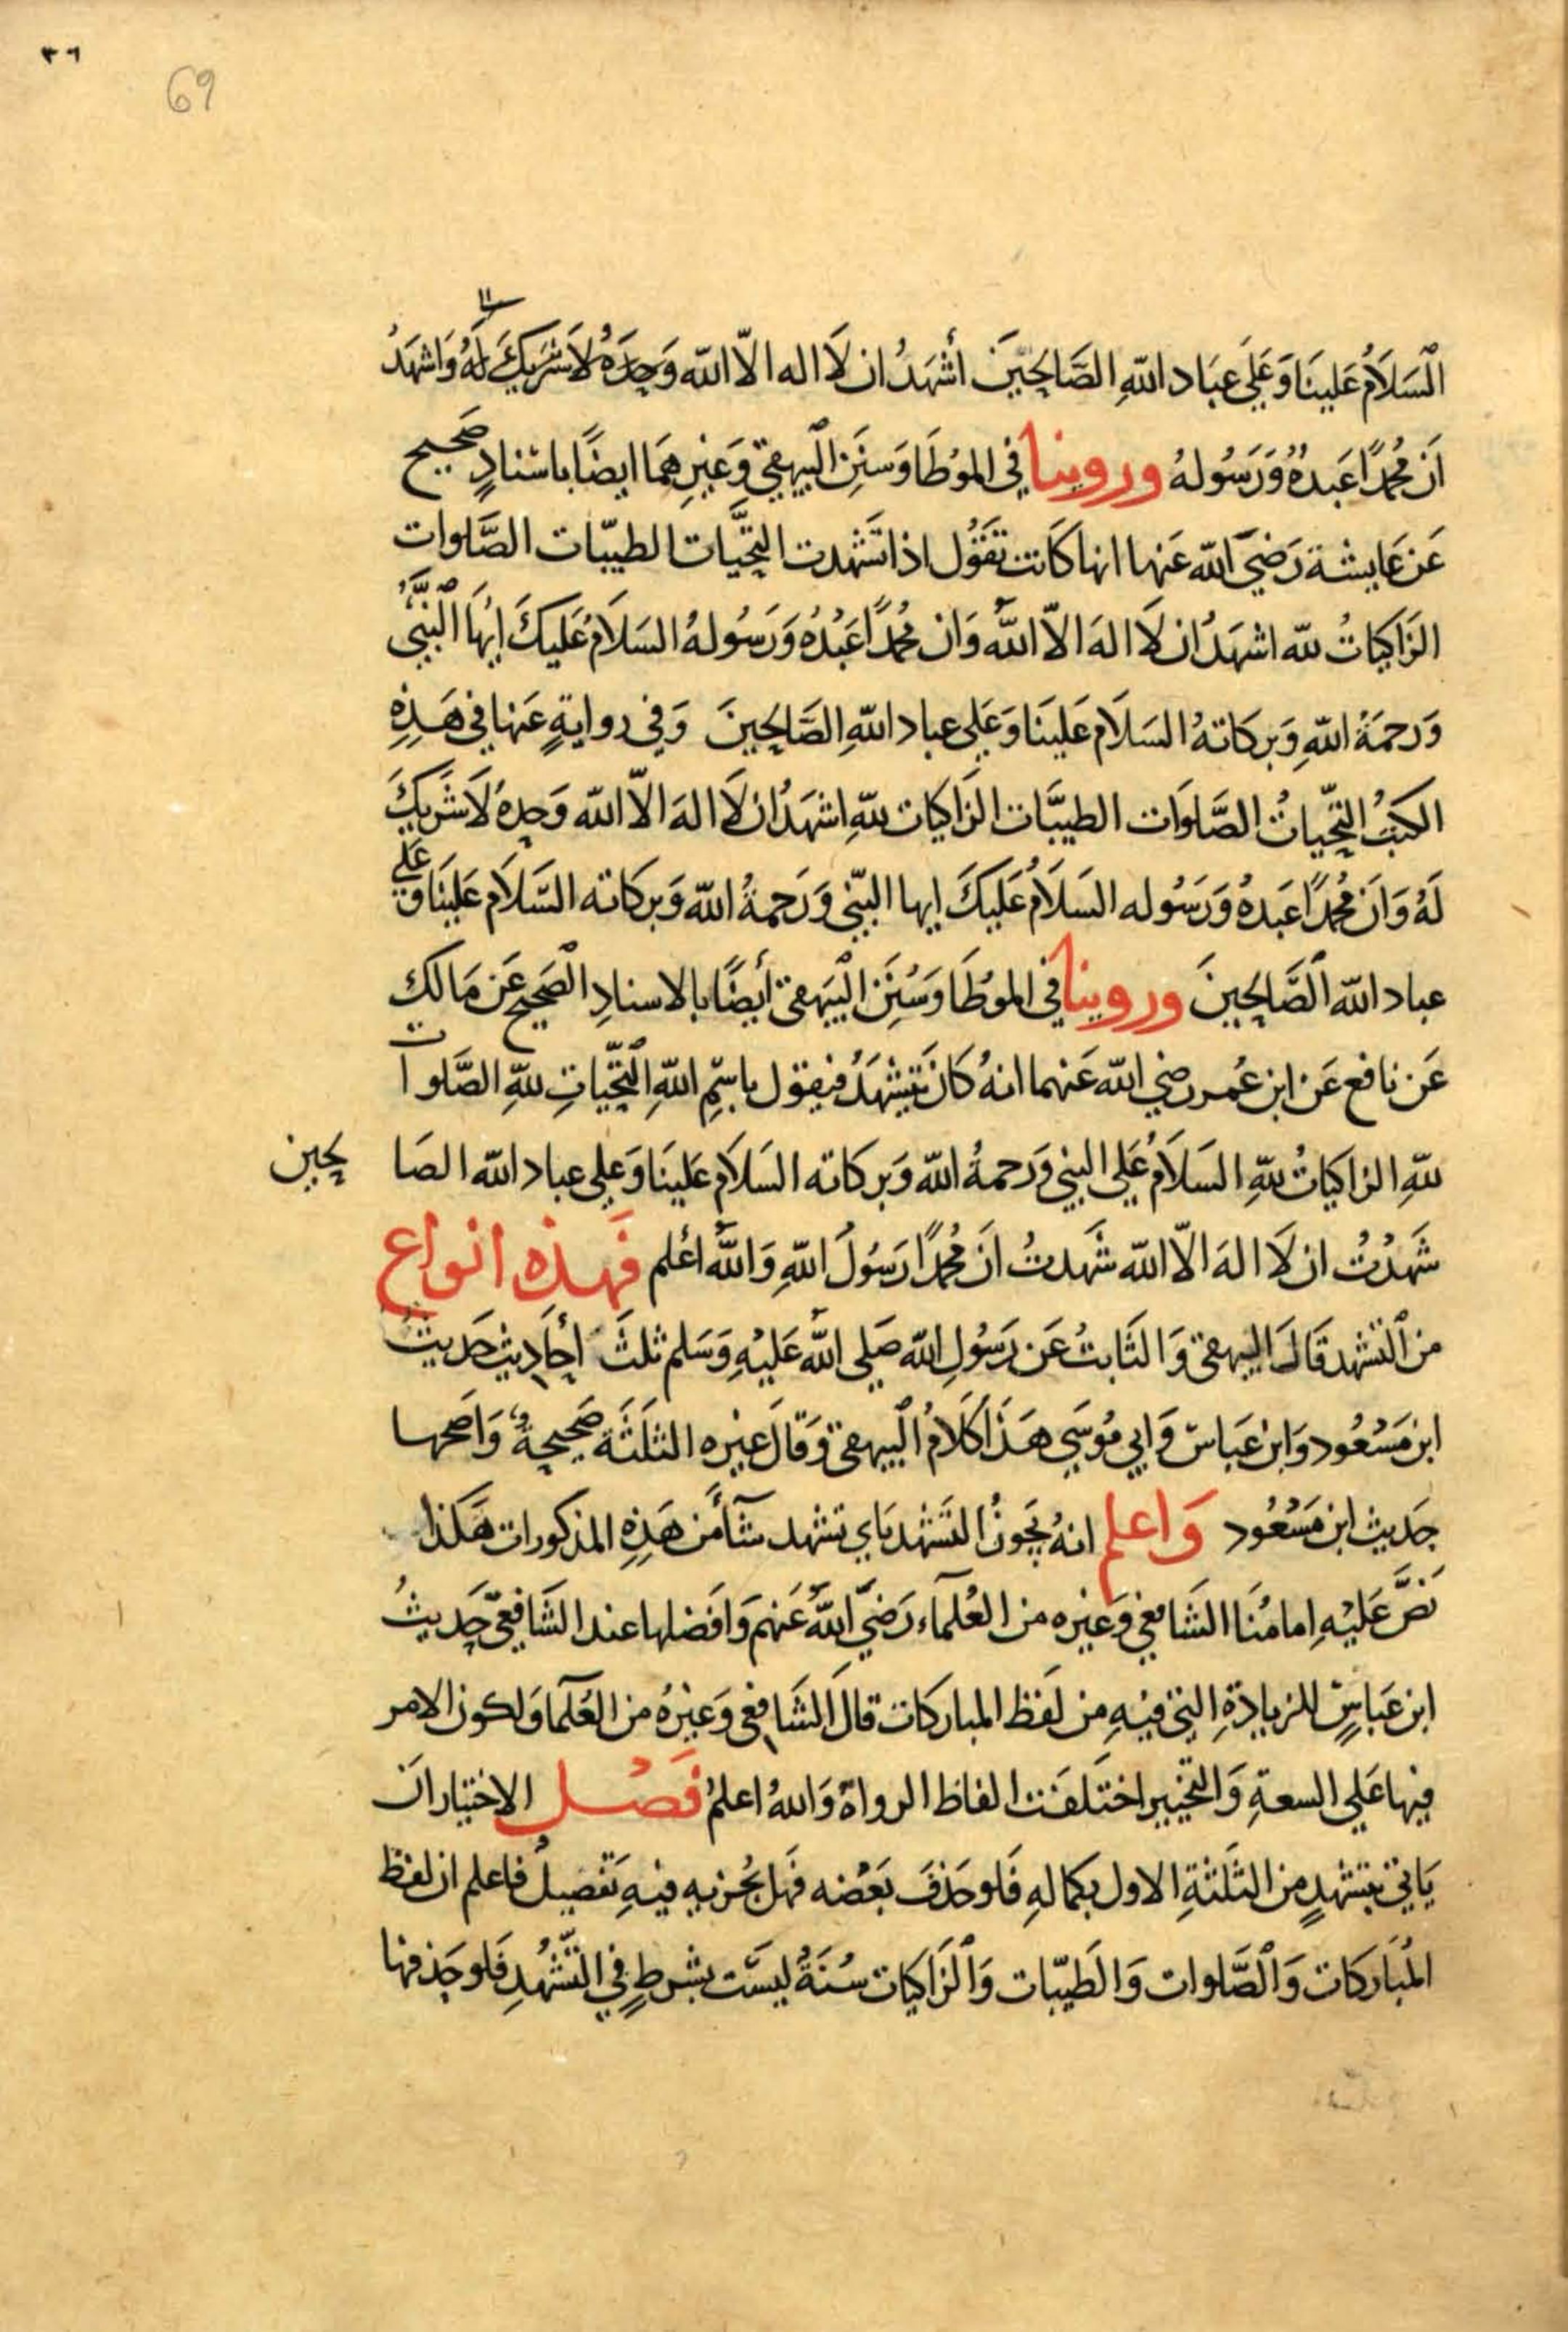 ٣٦
69
اَلسَلَامُ عَلَينَا وَعَلَى عِبَاد اللّٰهِ الصَّالِحِينَ أشْهَدُ ان لَا اله الّا اللّٰه وَحدَهُ لَا شَرِيكَ لَهُ وَاشهَدُ
اَنَ مُحمدًا عَبدهُ وَرَسُولهُ وروينا في الموُطَا وَسنَنِ البَيهقي وَغَيرِهمَا ايضًا باسنادٍ صَحيح
عَن عَايشة رَضيَ اللّٰه عَنها انها كَانت تقَوُل اذا تشَهدت التحيَّات الطيبّات الصَّلوات
الزَاكيَاتُ لله اشهَدُ ان لَا الهَ الّا اللّٰهُ وَان مُحمدًا عَبْدُه وَرَسُولهُ السَلَامُ عَليكَ ايهَا النَبيُّ
وَرَحمَةُ اللّٰهِ وَبركَاتهُ السَلَام عَلينَا وَعَلى عباد اللّٰهِ الصَّالِحِينَ وَفي روايةٍ عَنها في هَذِهِ
الكتبُ التحّياتُ الصَّلَوَات الطيبَّات الزَاكيات للهِ اشهَدُ ان لَا الهَ الّا اللّٰه وَحدهُ لَا شَريكَ
لَهُ وَاَن مُحمدًا عَبدهُ وَرَسُوله السَلَامُ عَليكَ ايها النبّي وَرَحمةُ اللّٰه وَبركَاته السَّلَام عَلينَا وَعَلى
عباد اللّٰه الصَّالحينَ وروينا في الموُطَا وَسُنَن البَيهَقي أيضًا بالاسنادِ الصَحيح عَن مَالك
عَن نافع عَن ابن عُمر رضي اللّٰه عَنهما انهُ كَان يَتشهَدُ فيقول باسمِ اللّٰهِ التحّيّاتِ للهِ الصَّلوات
للهِ الزاكيَاتُ للهِ السَلَامُ عَلى النبي وَرَحمةُ اللّٰه وَبركَاته السَلَام عَلينَا وَعلى عباد اللّٰه الصَا لحين
شَهَدْتُ ان لَا الهَ الّا اللّٰه شَهدتُ اَن مُحمدًا رَسُولُ اللّٰهِ وَاللّٰهُ أعلم فَهذه انواع
من التشهد قَالَ البيهقي وَالثَابتُ عَن رَسُولِ اللّٰه صَلى اللّٰهُ عَليْهِ وَسَلم ثلثَ أحَادِيث حَديثُ
ابن مَسْعُود وَابن عَباسٍ وَابي مُوسَى هَذَا كَلَامُ البيهقي وَقالَ غيره الثلَثَة صَحيحةٌ وَاصَحها
حَديث ابن مَسْعُود وَاعلم انهُ يَجوزُ التشَهْد بَاي تشهد شآءَ من هَذِهِ المذكورات هَكَذا
نَصَّ عَليْهِ امامُنَا الشَافعي وَغيره من العُلمآء رَضيَ اللّٰهُ عَنهم وَافضَلها عند الشَافعيّ حَديثُ
ابن عَباسٍ للزيادَةِ التي فيْهِ من لَفظ المباركَات قالَ الشَافعي وَغَيرُهُ من العُلمآ وَلكون الامر
فيها عَلى السعةِ وَالتخيير اختَلفَت الفاظ الرواة وَاللهُ اعلمُ فَصْل الاختيار ان
يَاتي بتشهدٍ من الثَلثةِ الاول بكمالهِ فَلو حَذفَ بَعْضه فَهل يُجزيه فيْهِ تَفصيلُ فاعلم ان لفظ
المُبَاركَات وَالصَّلوات وَالطَيبّات وَالزَاكيات سُنَةُ ليسَت بشرطٍ في التَّشهُدِ فَلو حَذفها